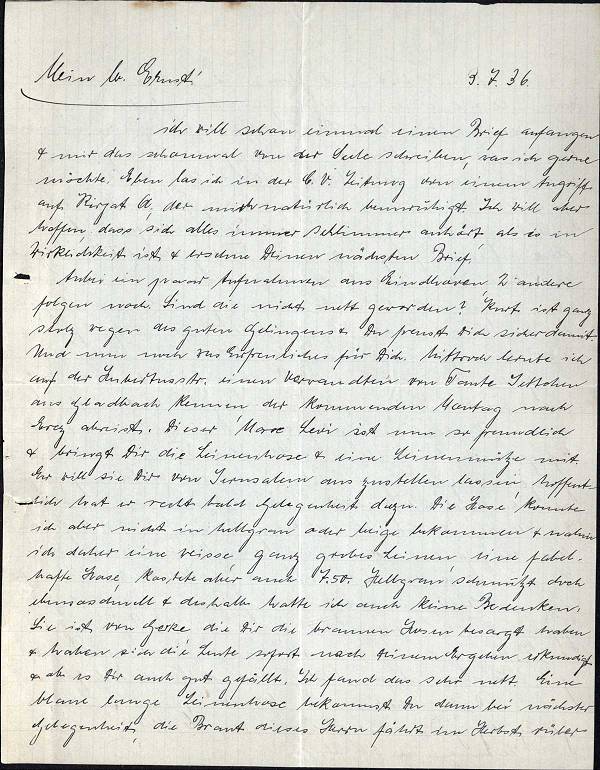 Mein lb. Ernst! 9.7.36.
ich will schon einmal einen Brief anfangen
& mir das schonmal von der Seele schreiben, was ich gerne
möchte. Eben las ich in der C.V. Zeitung von einem Angriff
auf Kirjat A, der mich natürlich beunruhigt. Ich will aber
hoffen, dass sich alles immer schlimmer anhört als es in
Wirklichkeit ist & ersehne Deinen nächsten Brief.
Anbei ein paar Aufnahmen aus Eindhoven 2 andere
folgen noch. Sind die nicht nett geworden? Kurt ist ganz
stolz wegen des guten Gelingens & Du freust Dich sicher damit.
Und nun noch was Erfreuliches für Dich. Mittwoch lernte ich
auf der Hubertusstr. einen Verwandten von Tante Settchen
aus Gladbach kennen der kommenden Montag nach
Erez abreist. Dieser Marc Levi ist nun so freundlich
& bringt Dir die Leinenhose & eine Leinenmütze mit.
Er will sie Dir von Jerusalem aus zustellen lassen, hoffent-
lich hat er recht bald Gelegenheit dazu. Die Hose konnte
ich aber nicht in hellgrau oder beige bekommen & nahm
ich daher eine weisse, ganz grobes Leinen, eine fabel-
hafte Hose, kostete aber auch 7.50. Hellgrau schmutzt doch
ebensoschnell & deshalb hatte ich auch keine Bedenken.
Sie ist von Gerke die Dir die braunen Hosen besorgt haben
& haben sich die Leute sofort nach Deinem Ergehen erkundigt
& ob es Dir auch gut gefällt. Ich fand das sehr nett. Eine
blaue lange Leinenhose bekommst Du dann bei nächster
Gelegenheit, die Braut dieses Herrn fährt im Herbst rüber